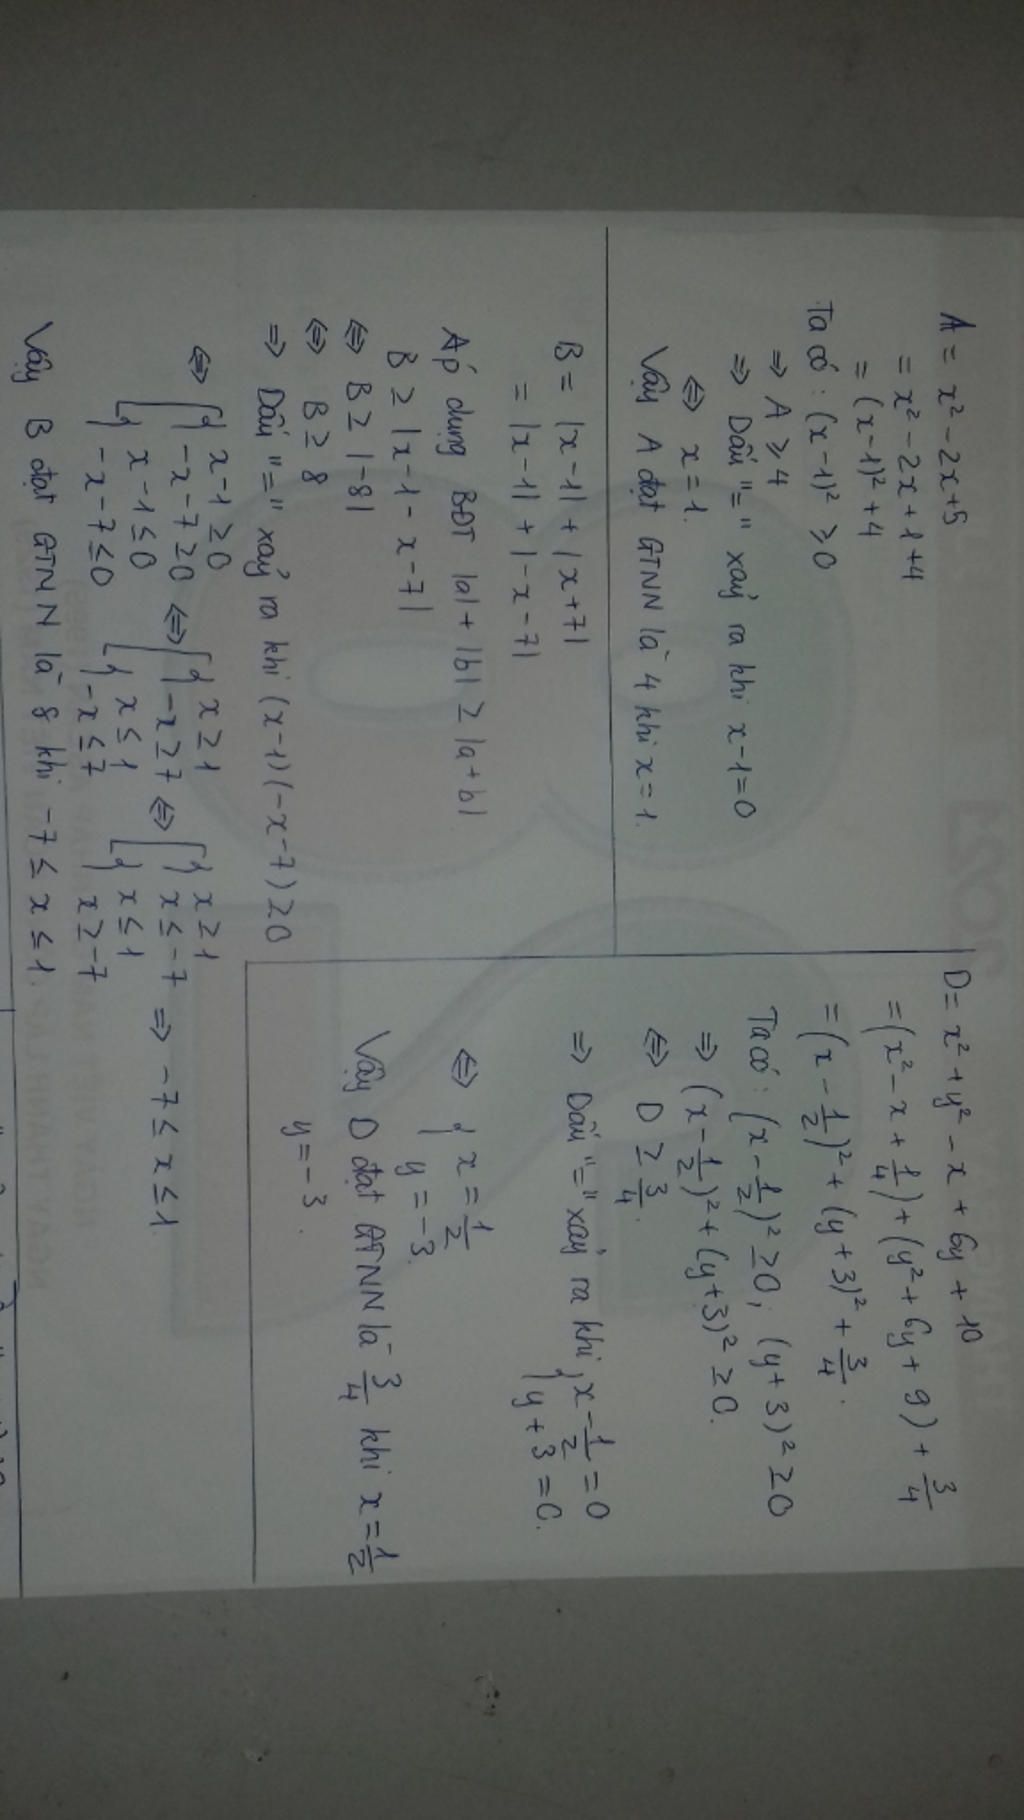 A = x² - 2x + 5
= x² - 2x + 1 + 4
= (x - 1)² + 4
Ta có : (x - 1)² ≥ 0
⇒ A ≥ 4
⇒ Dấu "=" xảy ra khi x - 1 = 0
⇔ x = 1.
Vậy A đạt GTNN là 4 khi x = 1.
B = |x - 1| + |x + 7|
= |x - 1| + |- x - 7|
Áp dụng BĐT |a| + |b| ≥ |a + b|
B ≥ |x - 1 - x - 7|
⇔ B ≥ |-8|
⇔ B ≥ 8
⇒ Dấu "=" xảy ra khi (x - 1)(- x - 7) ≥ 0
⇔ [ { x - 1 ≥ 0 ; - x - 7 ≥ 0 { x - 1 ≤ 0 ; - x - 7 ≤ 0
⇔ [ { x ≥ 1 ; - x ≥ 7 { x ≤ 1 ; - x ≤ 7
⇔ [ { x ≥ 1 ; x ≤ - 7 { x ≤ 1 ; x ≥ - 7
⇒ - 7 ≤ x ≤ 1.
Vậy B đạt GTNN là 8 khi - 7 ≤ x ≤ 1.
D = x² + y² - x + 6y + 10
= (x² - x + 1/4) + (y² + 6y + 9) + 3/4
= (x - 1/2)² + (y + 3)² + 3/4.
Ta có : (x - 1/2)² ≥ 0 ; (y + 3)² ≥ 0
⇒ (x - 1/2)² + (y + 3)² ≥ 0.
⇔ D ≥ 3/4.
⇒ Dấu "=" xảy ra khi { x - 1/2 = 0
y + 3 = 0.
⇔ { x = 1/2
y = - 3.
Vậy D đạt GTNN là 3/4 khi x = 1/2
y = - 3.